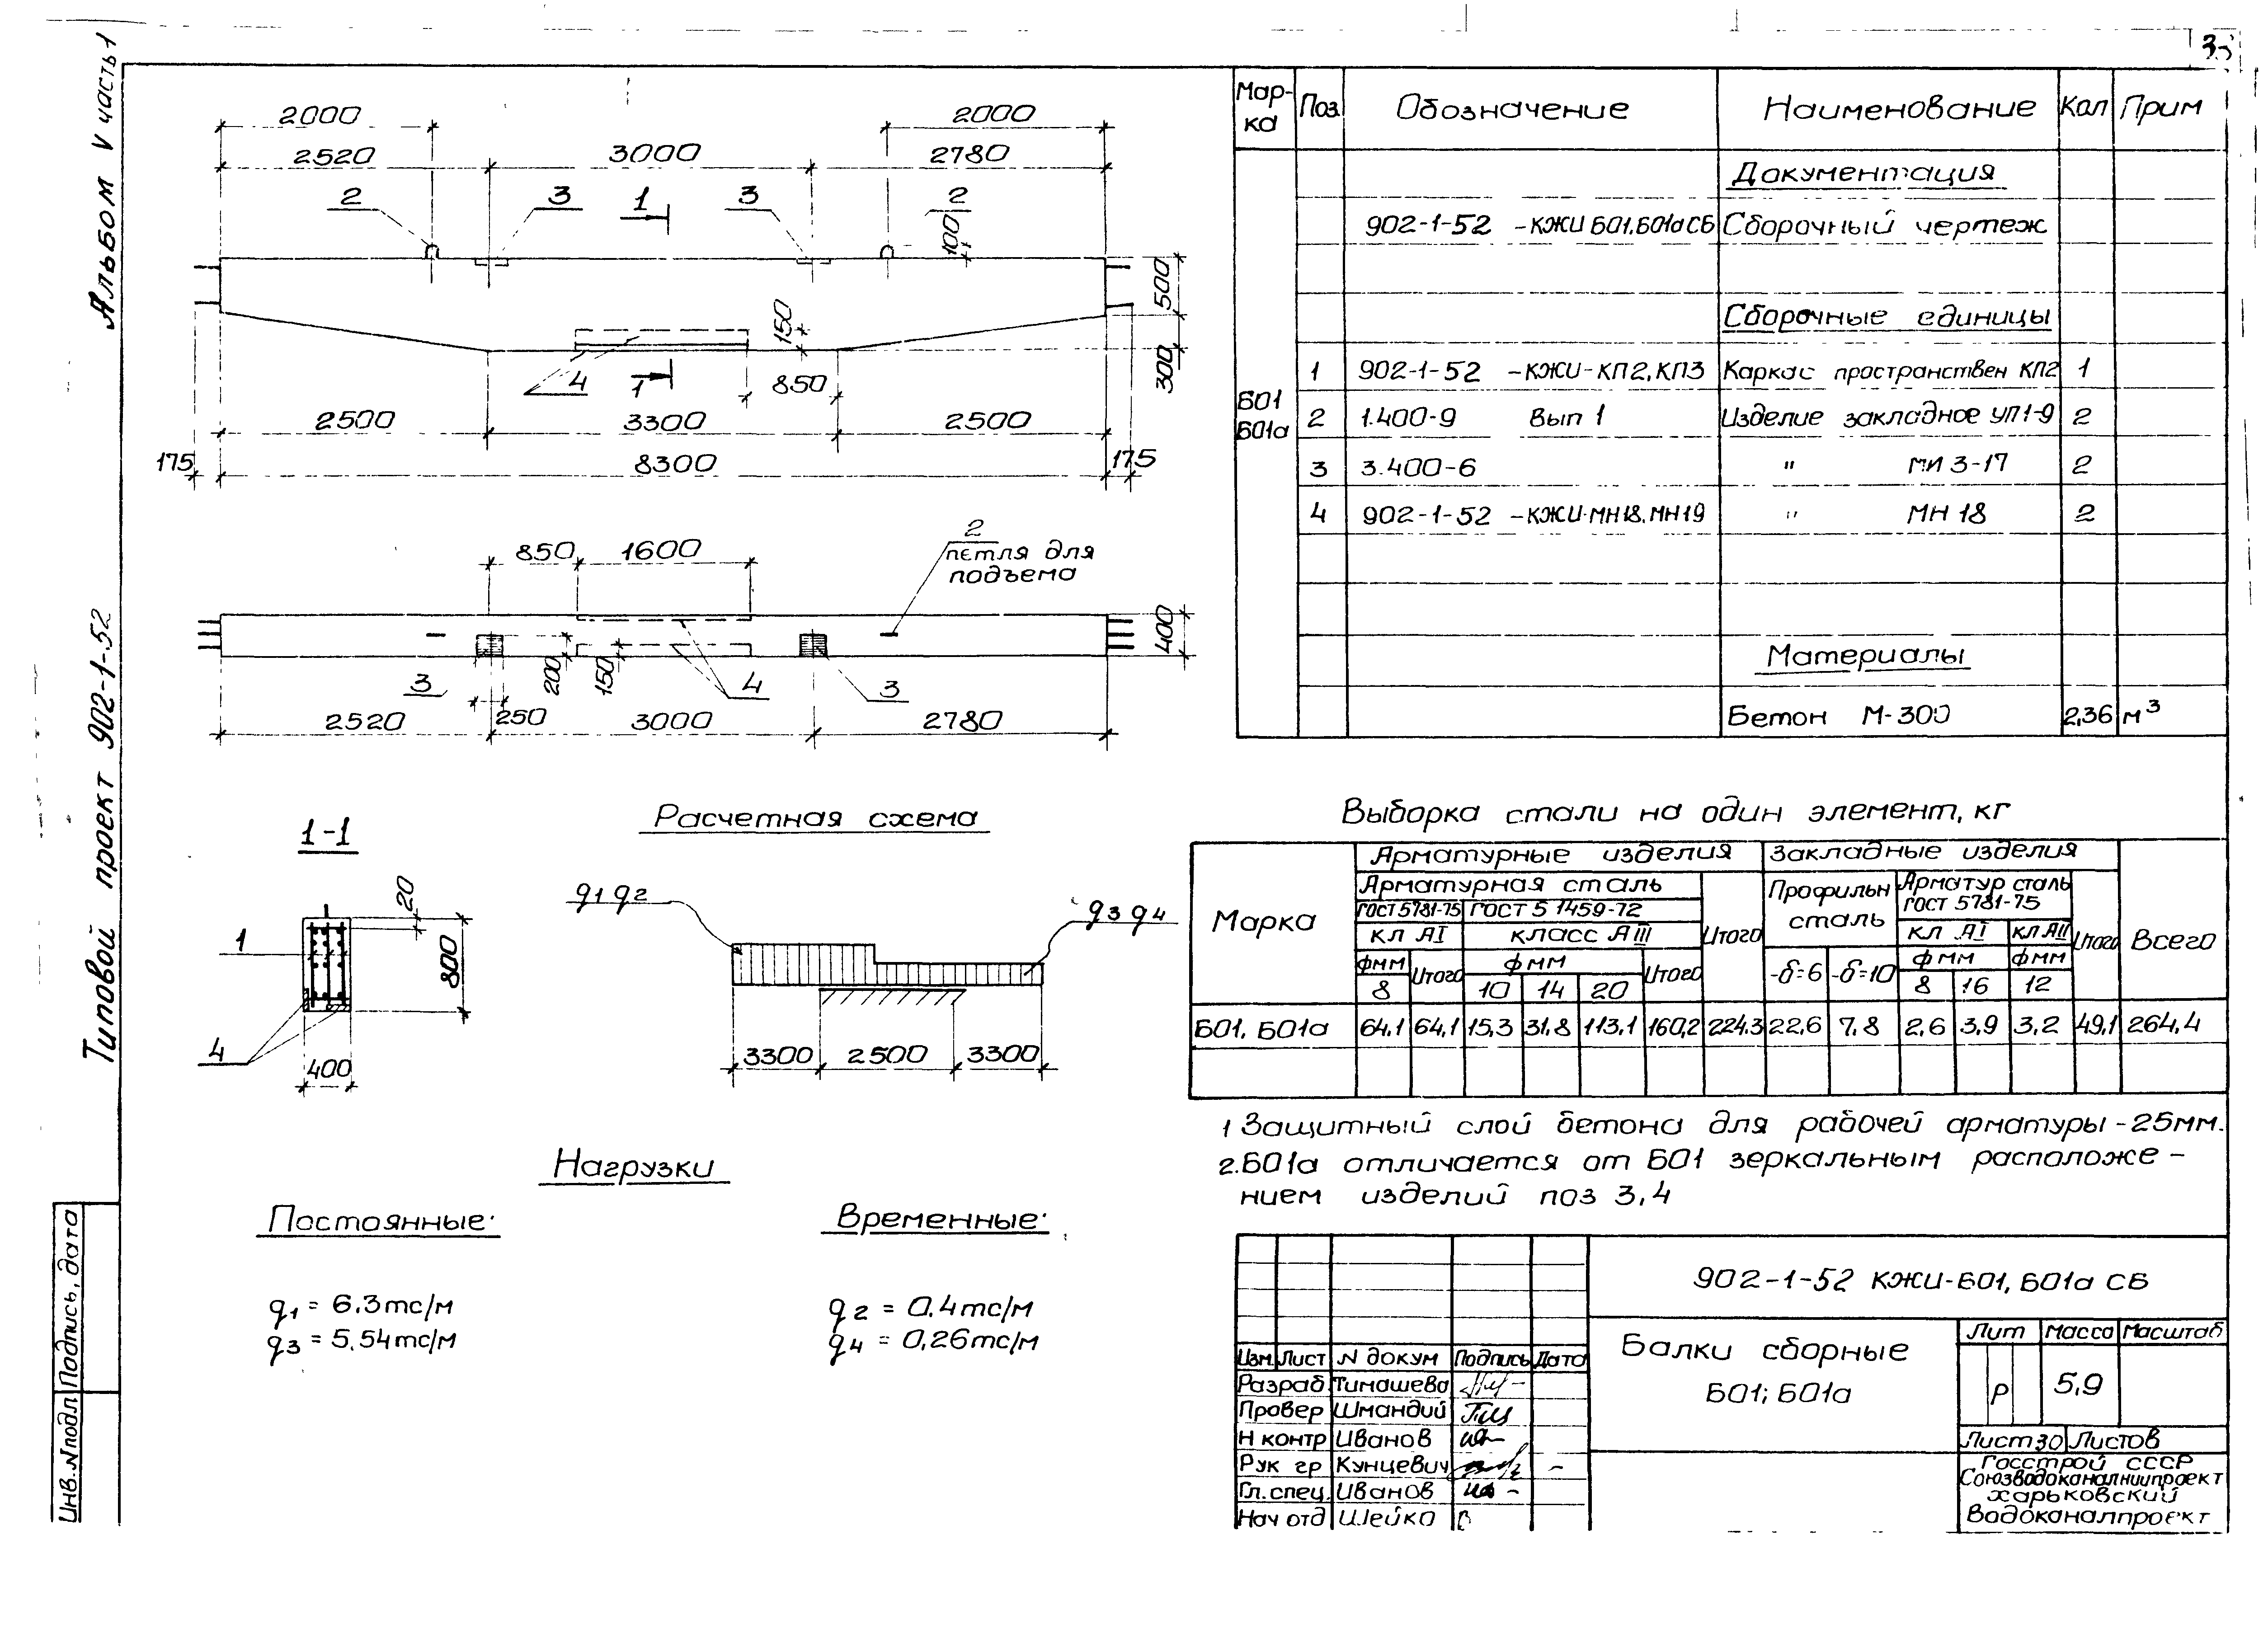 Альбом V часть 1
Типовой проект 902-1-52
Инв.№подл Подпись, дата
2000
2000
2520
3000
2780
2
3
1
3
2
100
500
150
300
4
1
850
2500
3300
2500
175
8300
175
850
1600
2
петля для
подъема
400
200
150
3
4
3
2520
250
3000
2780
1-1
20
1
800
4
400
Расчетная схема
q1 q2
q3 q4
3300
2500
3300
Нагрузки
Постоянные:
Временные:
q1 = 6.3тс/м
q2 = 0.4тс/м
q3 = 5.54тс/м
q4 = 0,26тс/м
Мар-
ка
Поз.
Обозначение
Наименование
Кол
Прим
Документация
902-1-52 -КЖИ Б01,Б01аСБ Сборочный чертеж
Сборочные единицы
Б01
Б01а
1 902-1-52 -КЖИ-КП2,КП3 Каркас пространствен КП2 1
2 1.400-9 Вып 1 Изделие закладное УП1-9 2
3 3.400-6 " МИ 3-17 2
4 902-1-52 -КЖИ-МН18,МН19 " МН 18 2
Материалы
Бетон М-300 2,36 м3
Выборка стали на один элемент, кг
Марка
Арматурные изделия
Закладные изделия
Всего
Арматурная сталь
Итого
Профильн
сталь
Арматур сталь
ГОСТ 5781-75
Итого
ГОСТ 5781-75
ГОСТ 5 1459-72
кл АI
класс АIII
кл АI
кл АII
фмм
Итого
фмм
Итого
-δ=6
-δ=10
фмм
фмм
8
10
14
20
8
16
12
Б01, Б01а 64,1 64,1 15,3 31,8 113,1 160,2 224,3 22,6 7,8 2,6 3,9 3,2 49,1 264,4
1 Защитный слой бетона для рабочей арматуры - 25мм.
2.Б01а отличается от Б01 зеркальным расположе-
нием изделий поз 3,4
902-1-52 КЖИ-Б01, Б01а СБ
Балки сборные
Б01; Б01а
Лит
Масса
Масштаб
Р
5,9
Лист 30
Листов
Госстрой СССР
Союзводоканалниипроект
Харьковский
Водоканалпроект
Изм. Лист N докум Подпись Дата
Разраб. Тимашева
Провер Шмандий
Н контр Иванов
Рук гр Кунцевич
Гл.спец. Иванов
Нач отд Шейко